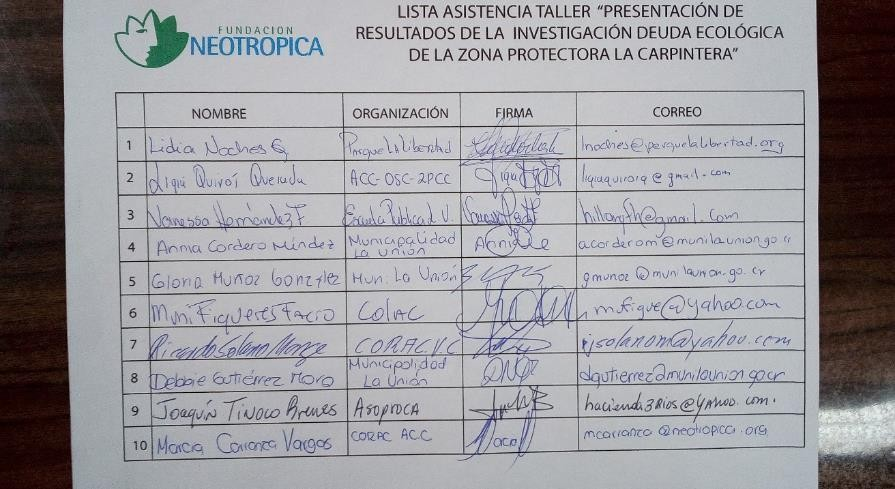 FUNDACION
NEOTROPICA
LISTA ASISTENCIA TALLER “PRESENTACIÓN DE
RESULTADOS DE LA INVESTIGACIÓN DEUDA ECOLÓGICA
DE LA ZONA PROTECTORA LA CARPINTERA”
NOMBRE ORGANIZACIÓN FIRMA CORREO
1 Lidia Noches G Parque La Libertad lnoches@parquelalibertad.org
2 Ligia Quirós Quesada ACC-OSC-ZPCC ligiaquirorq@gmail.com
3 Vanessa Hernández F Escuela Publica hillaryfh@gmail.com
4 Annia Cordero Méndez Municipalidad La Unión acorderom@munilaunion.go.cr
5 Gloria Muñoz González Mun. La Unión gmunoz@munilaunion.go.cr
6 Muni Figueres Facio COLAC mufigue@yahoo.com
7 Ricardo Solano Monge CORACVC rjsolanom@yahoo.com
8 Debbie Gutiérrez Mora Municipalidad La Unión dgutierrez@munilaunion.go.cr
9 Joaquín Tinoco Brenes Asoproca hacienda3rios@yahoo.com.
10 Marcia Carranza Vargas CORAC ACC mcarranza@neotropica.org